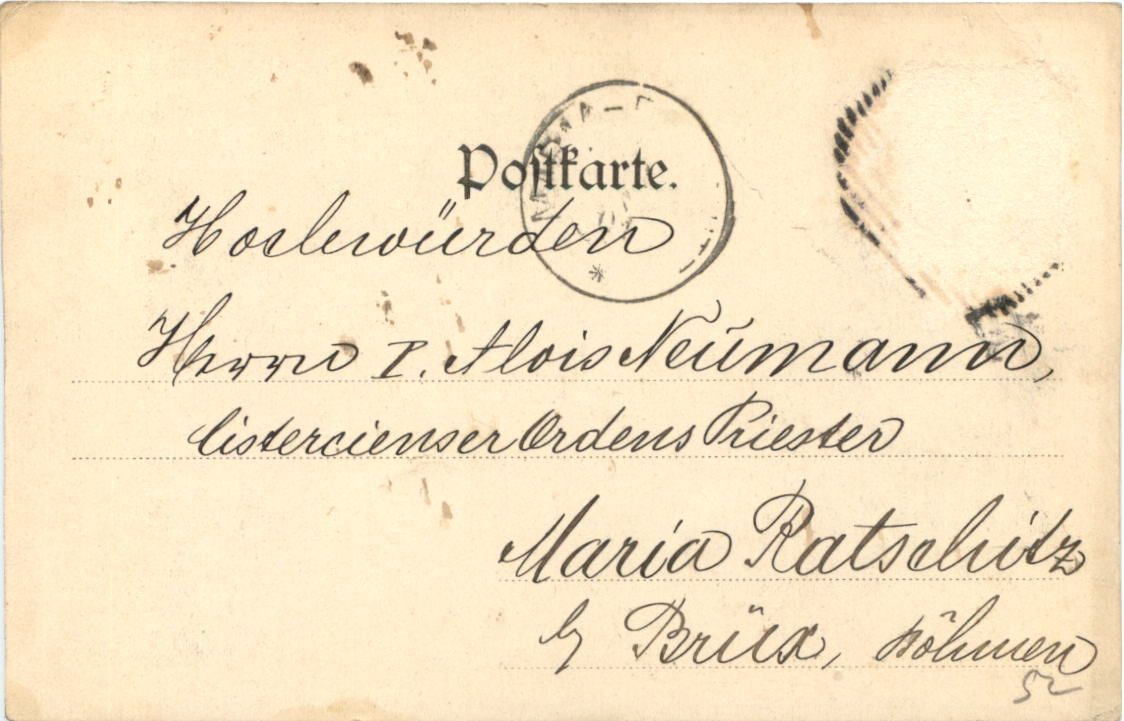 Postkarte.
Hochwürden
Herrn P. Alois Neumann,
Cistercienser Ordens Priester
Maria Ratschitz
by Brüx, Böhmen
52